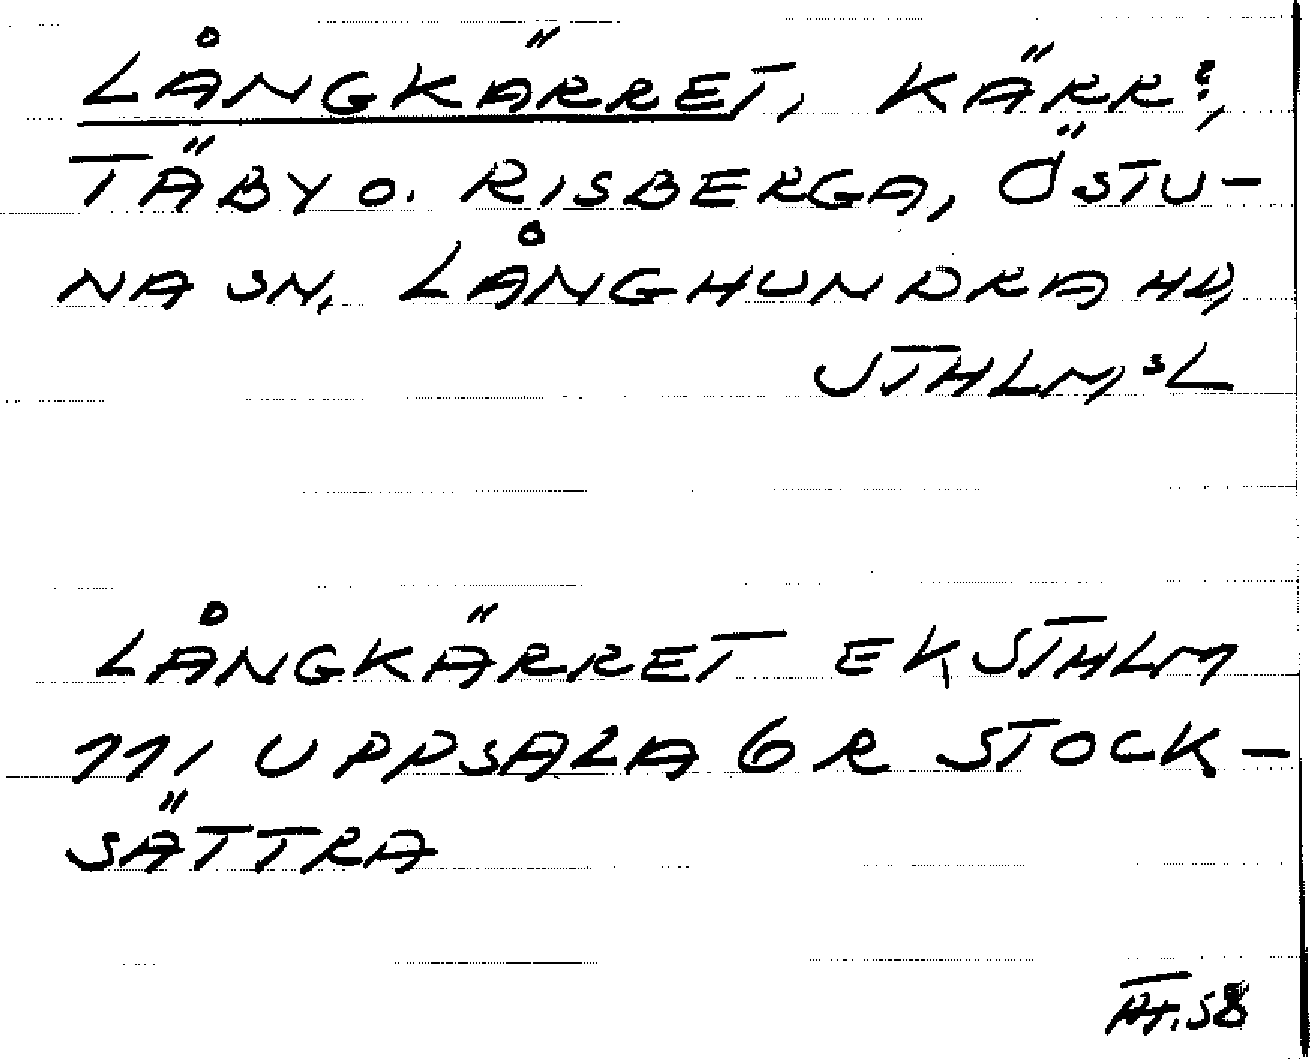 LÅNGKÄRRET, KÄRR?,
TÄBY O. RISBERGA, ÖSTU-
NA SN, LÅNGHUNDRA HD,
STHLM,S L
LÅNGKÄRRET EK STHLM
111 UPPSALA 6 R STOCK-
SÄTTRA